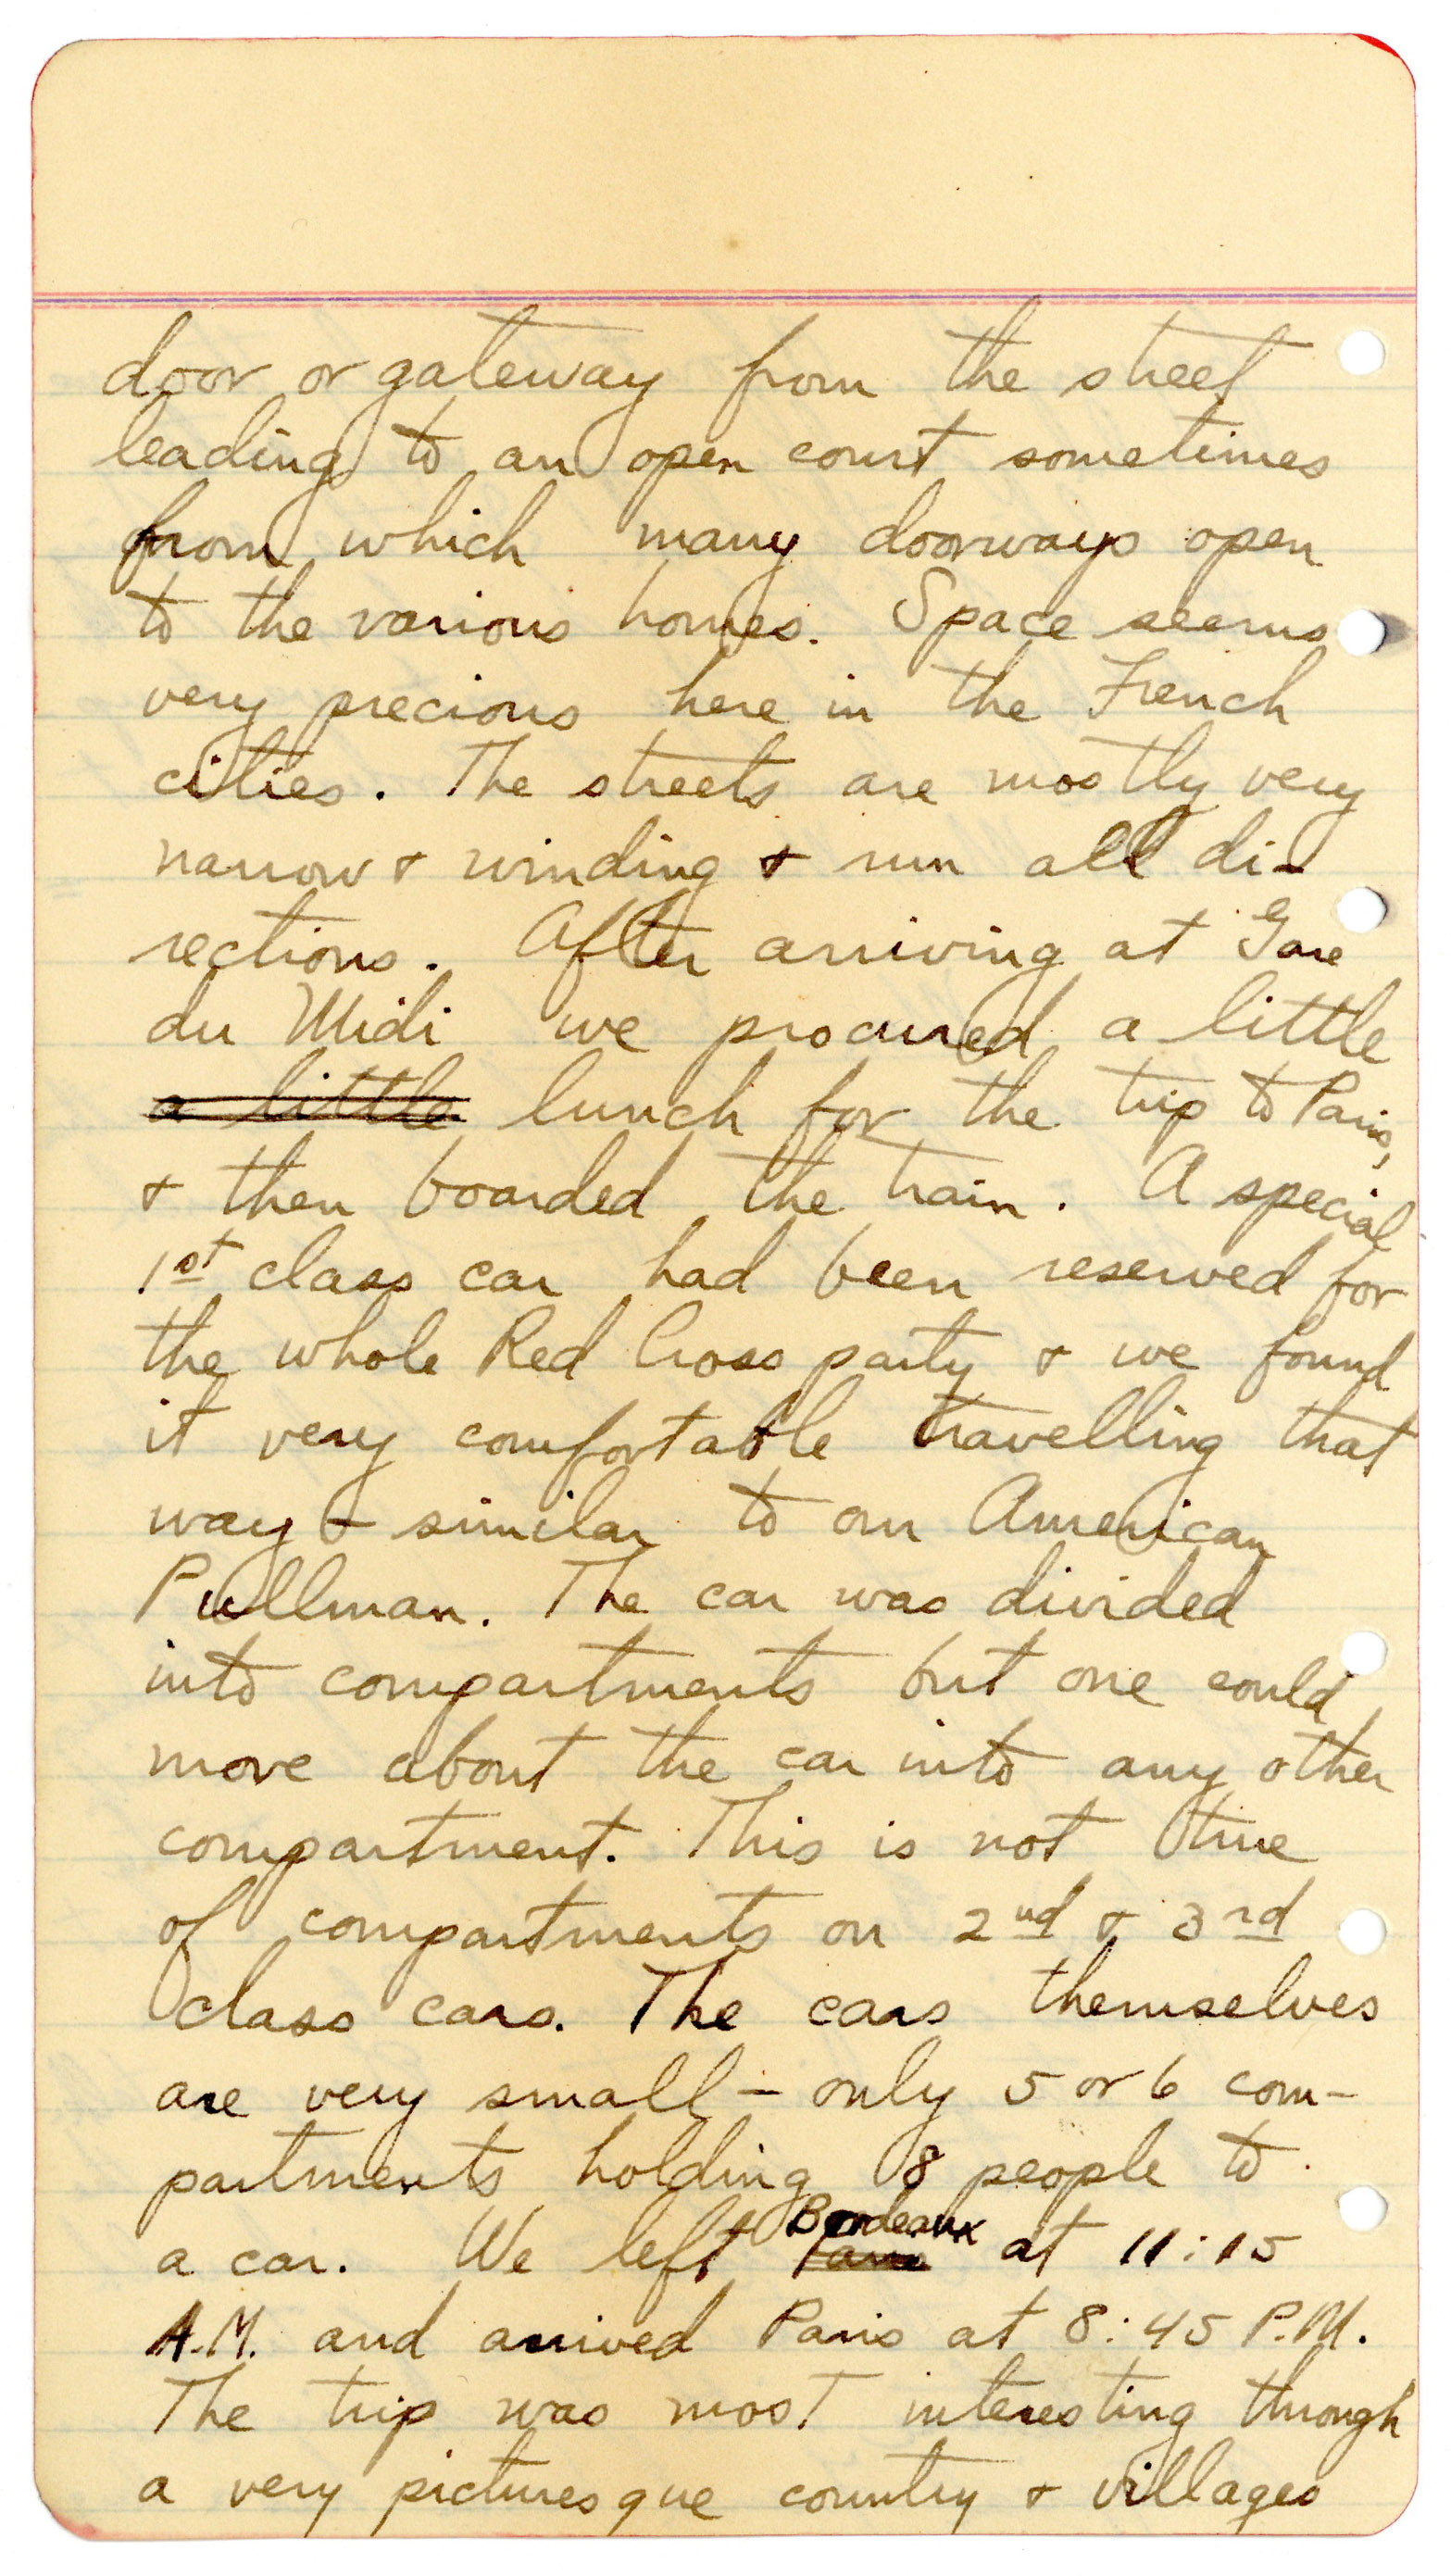 door or gateway from the street
leading to an open court sometimes
from which many doorways open
to the various homes. Space seems
very precious here in the French
cities. The streets are mostly very
narrow & winding & run all di-
rections. After arriving at Gare
du Midi we procured a little
a little lunch for the trip to Paris,
& then boarded the train. A special
1st class car had been reserved for
the whole Red Cross party & we found
it very comfortable travelling that
way & similar to our American
Pullman. The car was divided
into compartments but one could
move about the car into any other
compartment. This is not true
of compartments on 2nd & 3rd
class cars. The cars themselves
are very small – only 5 or 6 com-
partments holding 8 people to
a car. We left Paris Bordeaux at 11:15
A.M. and arrived Paris at 8:45 P.M.
The trip was most interesting through
a very picturesque country & villages